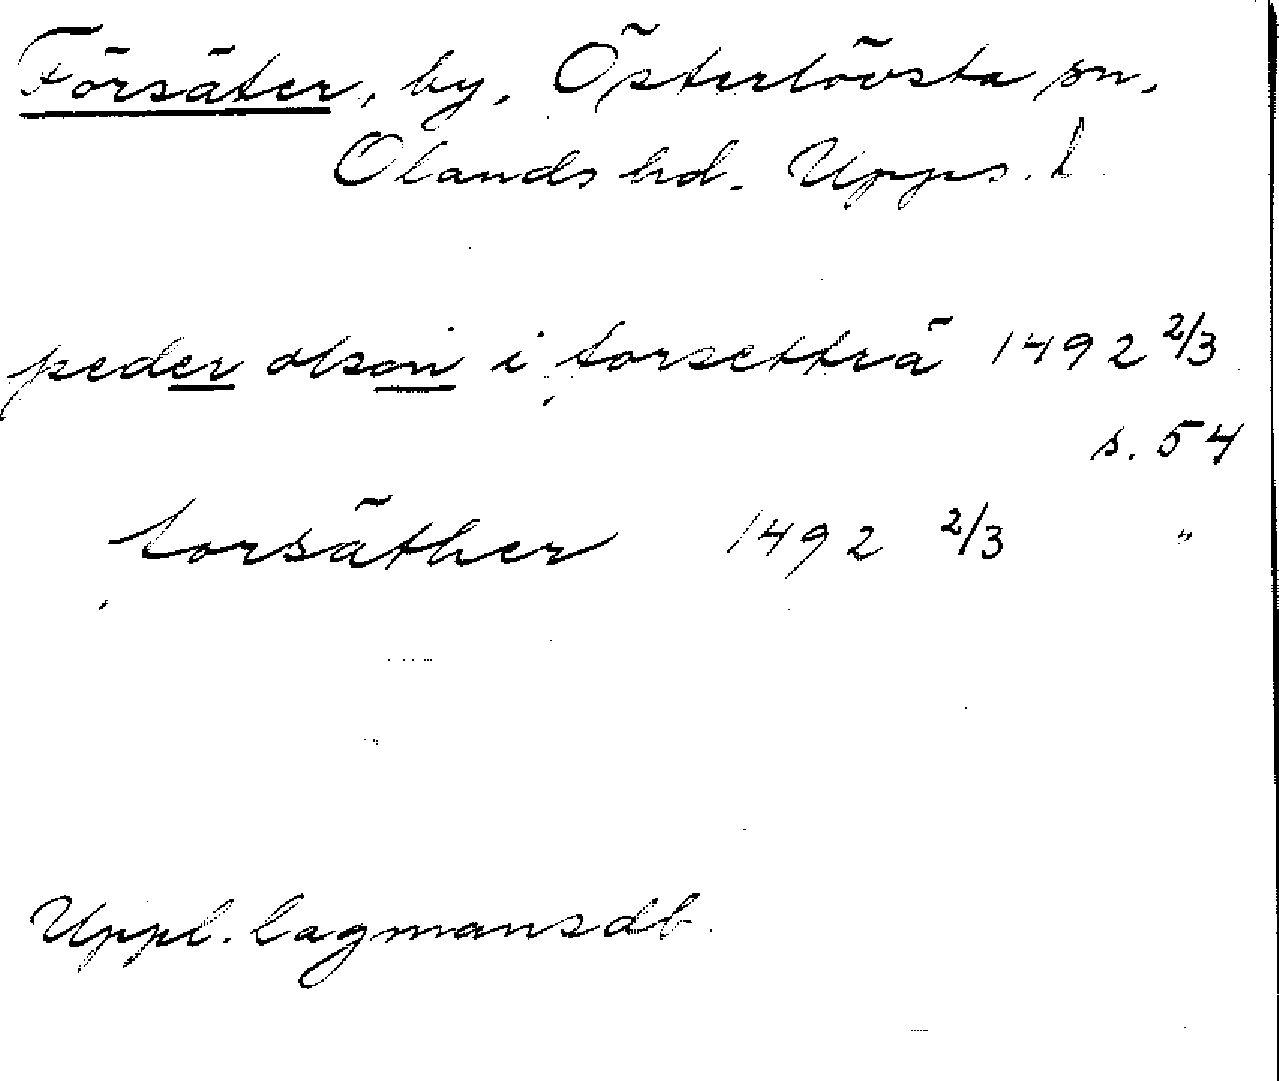 Försäter, by, Österlövsta sn,
Olands hd. Upps. l.
peder olson i torsetträ 1492 2/3
s. 54
torsäther 1492 2/3 "
Uppl. lagmansdb.